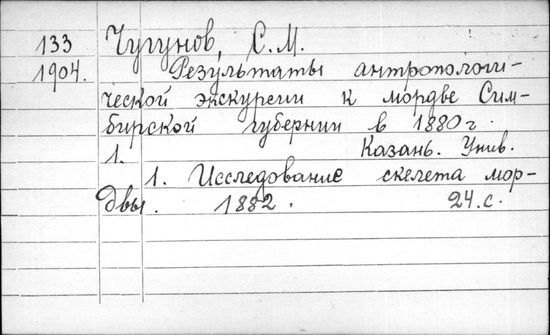 133 Чугунов, С.М.
1904. Результаты антропологи-
ческой экскурсии к мордве Сим-
бирской губернии в 1880 г.
1. Казань. Унив.
1. Исследование скелета мор-
двы. 1882. 24.с.